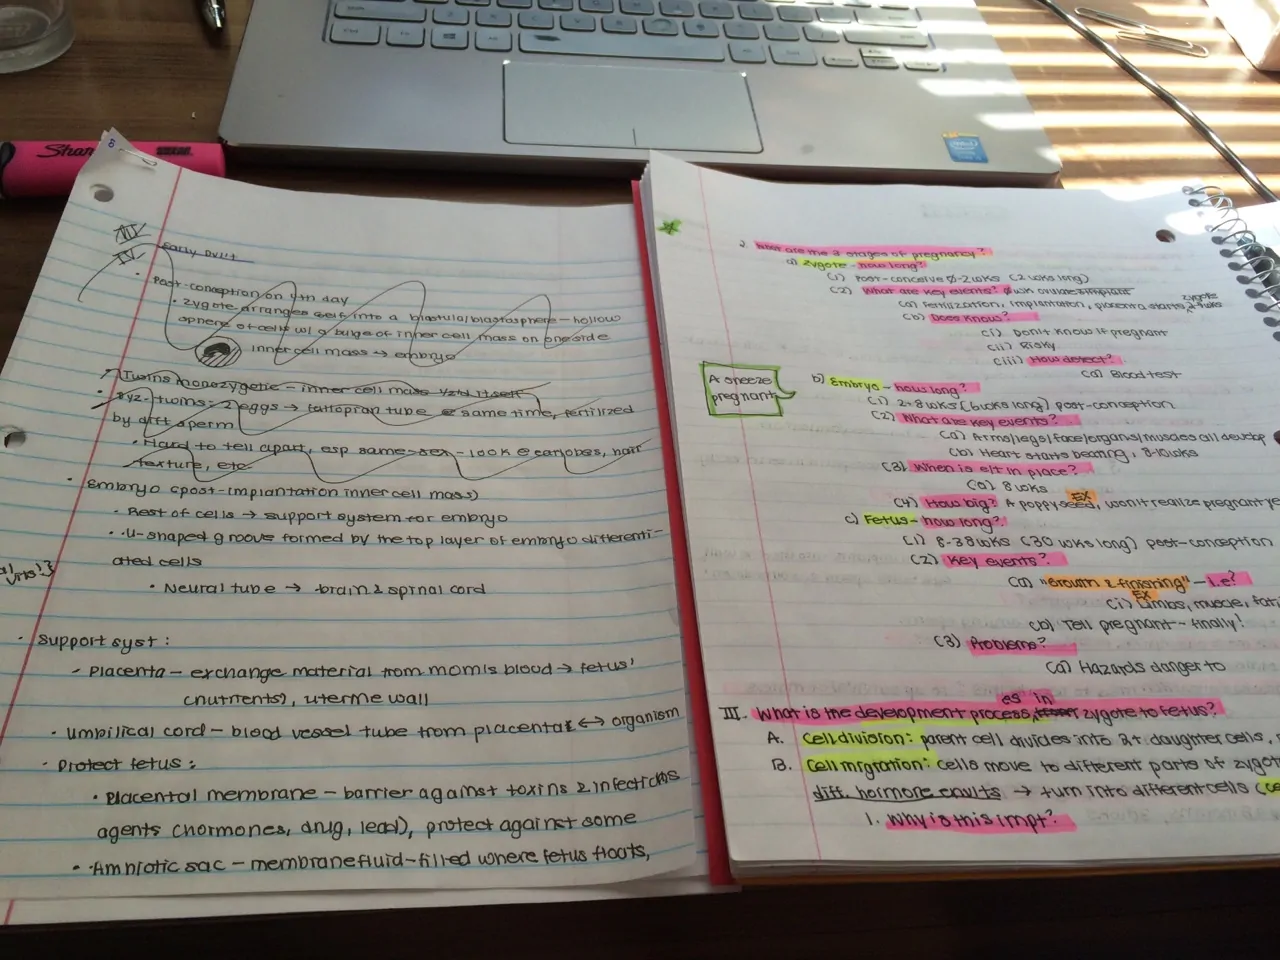 Sharpie
III
IV
Early Dvl't
• Post-conception on 4th day
• Zygote arranges self into a blastula/blastosphere - hollow
sphere of cells w/ a bulge of inner cell mass on one side
inner cell mass → embryo
Twins monozygotic - inner cell mass
twins: 2 eggs → fallopian tube @ same time, fertilized
by diff sperm
• Hard to tell apart, esp same-sex - look @ earlobes, hair
texture, etc
• Embryo (post-implantation inner cell mass)
• Rest of cells → support system for embryo
• U-shaped groove formed by the top layer of embryo differenti-
ated cells
• Neural tube → brain & spinal cord
• Support syst:
- Placenta - exchange material from mom's blood → fetus'
(nutrients), uterine wall
• Umbilical cord - blood vessel tube from placenta ↔ organism
• Protect fetus:
• Placental membrane - barrier against toxins & infectious
agents (hormones, drug, lead), protect against some
• Amniotic sac - membrane fluid-filled where fetus floats,
2. What are the 3 stages of pregnancy?
a) Zygote - how long?
(1) Post-conceive 0-2 wks (2 wks long)
(2) What are key events?
(a) Fertilization, implantation, placenta starts
zygote
(b) Does know?
(i) Don't know if pregnant
(ii) Risky
(iii) How detect?
(a) Blood test
A sneeze
pregnant
b) Embryo - how long?
(1) 2-8 wks (6 wks long) post-conception
(2) What are key events?
(a) Arms/legs/face/organs/muscles all develop
(b) Heart starts beating, 8-10 wks
(3) When is e/t in place?
(a) 8 wks
(4) How big? A poppyseed, won't realize pregnant
EX
c) Fetus - how long?
(1) 8-38 wks (30 wks long) post-conception
(2) Key events?
(a) "Growth & finishing" - i.e?
EX
(i) Limbs, muscle,
(b) Tell pregnant - finally!
(3) Problems?
(a) Hazards danger to
es in
III. What is the development process, zygote to fetus?
A. Cell division: parent cell divides into 2+ daughter cells,
B. Cell migration: cells move to different parts of
diff. hormone → turn into different cells
1. Why is this impt?